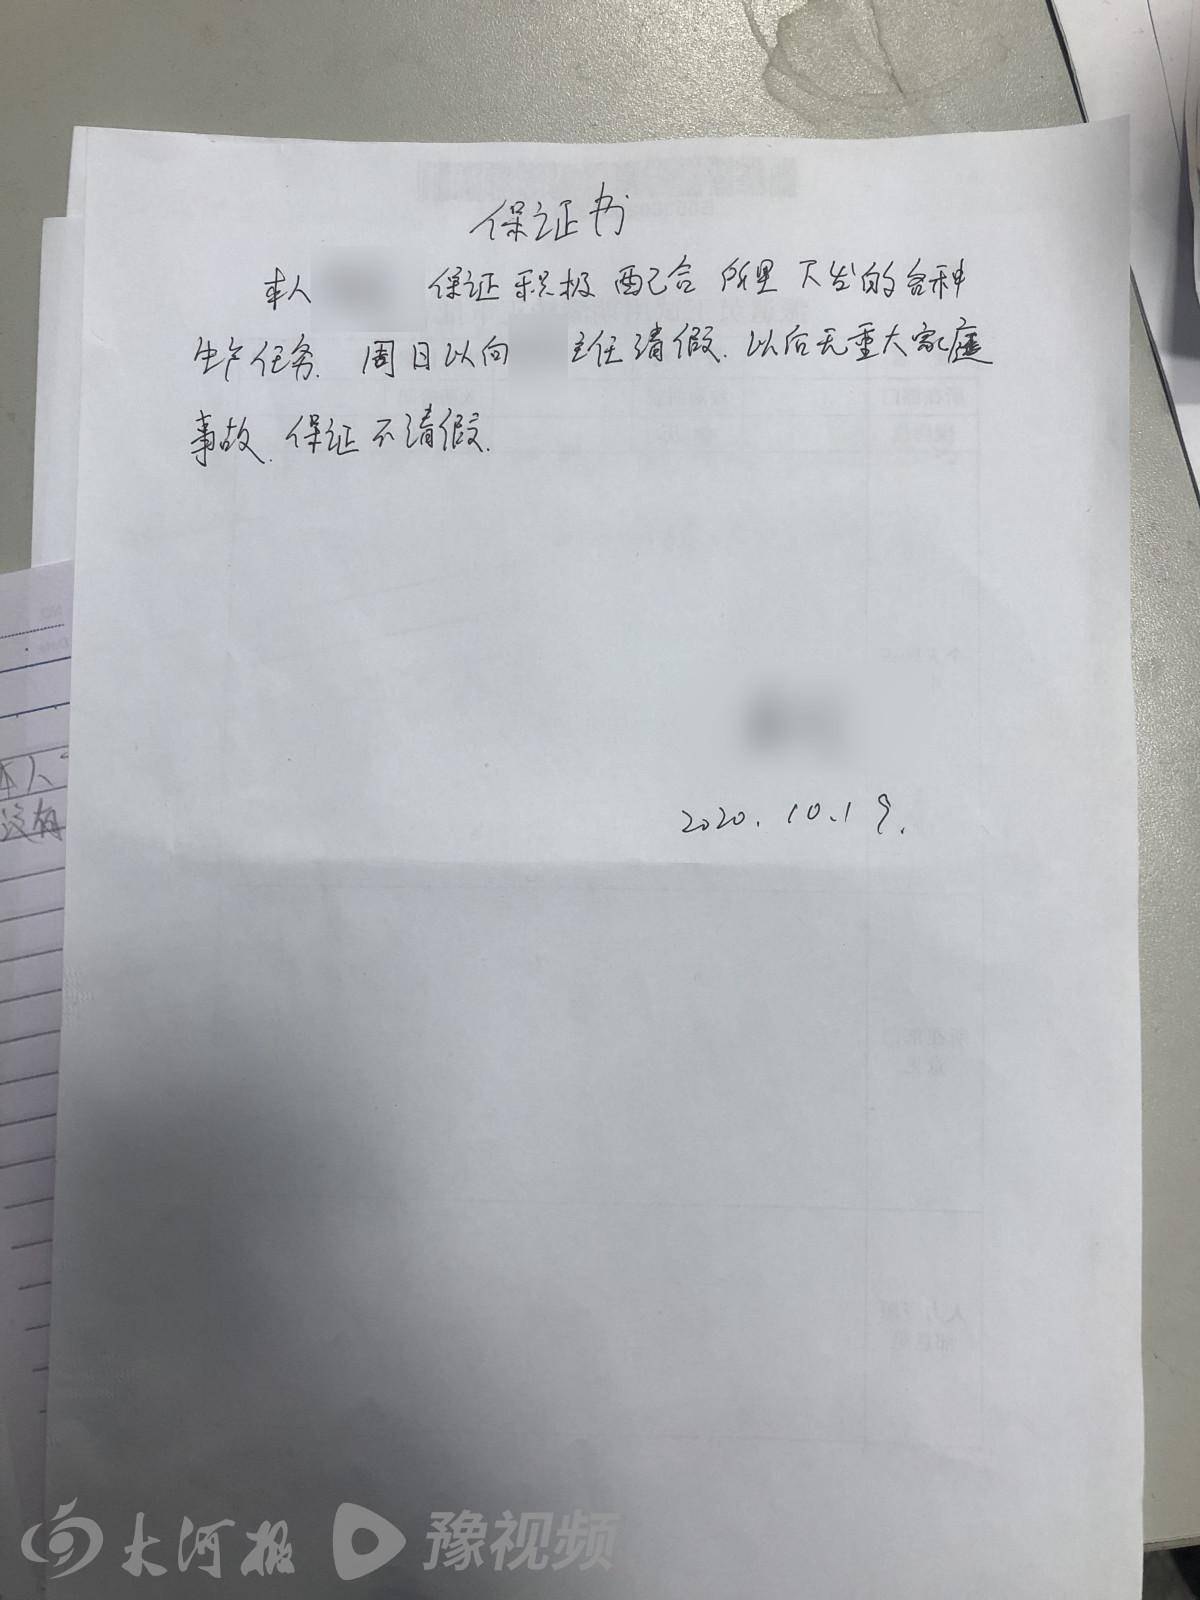 保证书
本人 保证积极配合所里下发的各种
生产任务. 周日以向 主任请假. 以后无重大家庭
事故. 保证不请假.
2020.10.19.
本人
没有
大河报 豫视频